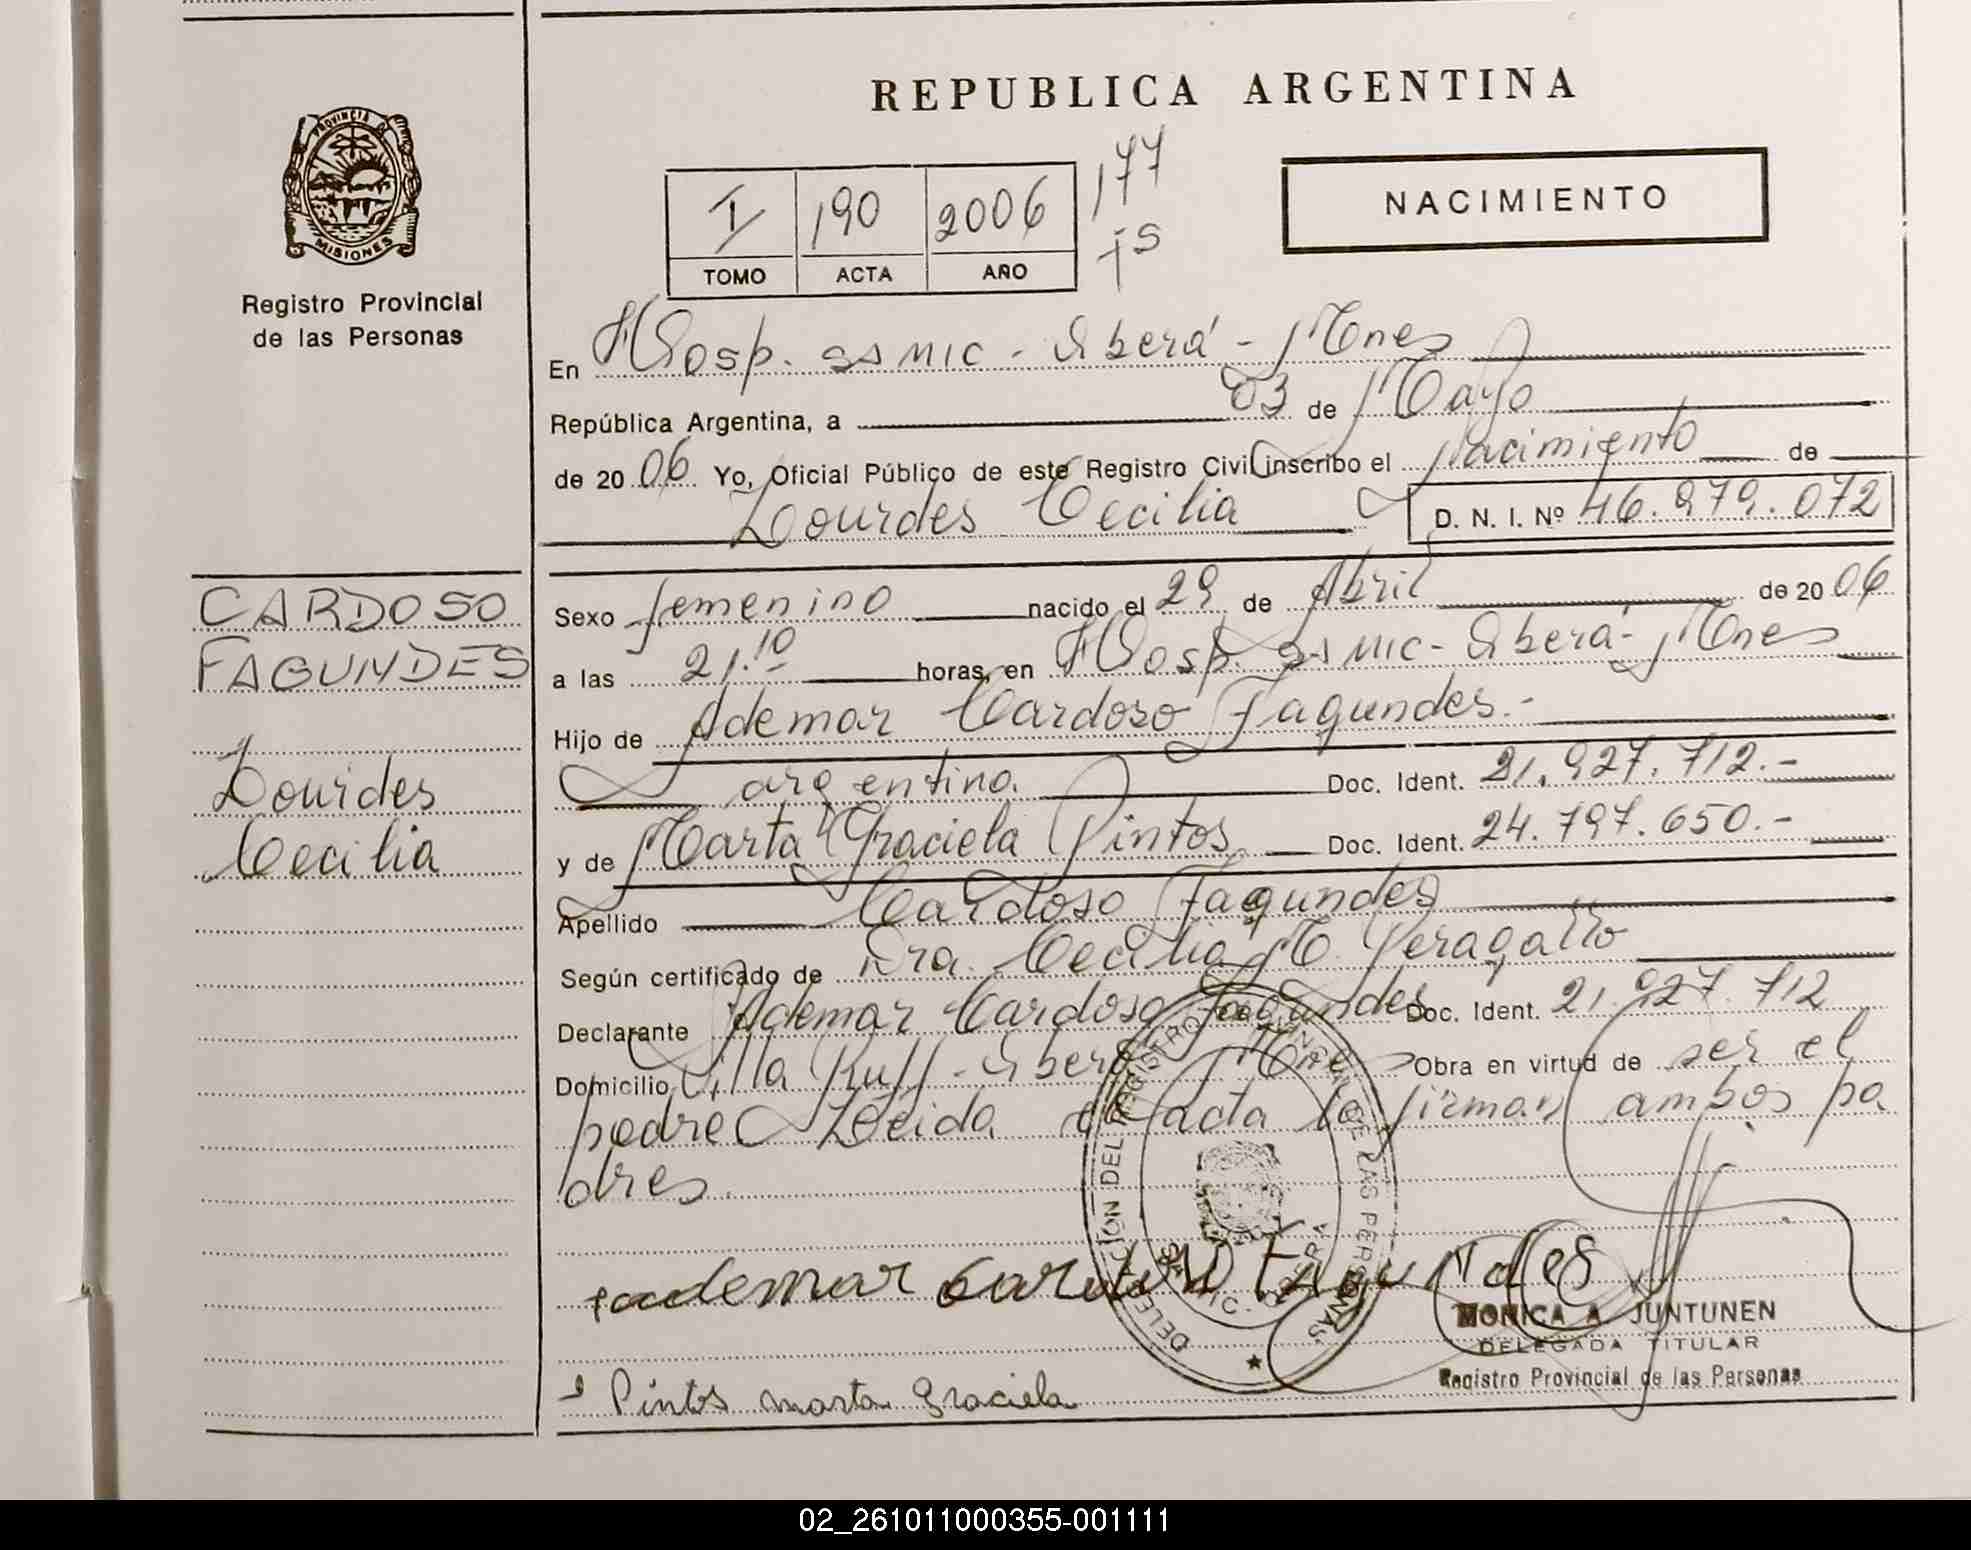 REPUBLICA ARGENTINA
PROVINCIA DE
MISIONES
Registro Provincial
de las Personas
I 190 2006 177
TOMO ACTA AÑO fs
NACIMIENTO
En Hosp. SAMIC - Oberá - Mnes
República Argentina, a 03 de Mayo
de 20 06 Yo, Oficial Público de este Registro Civil inscribo el Nacimiento de
Lourdes Cecilia D. N. I. Nº 46.979.072
CARDOSO
FAGUNDES
Lourdes
Cecilia
Sexo femenino nacido el 29 de Abril de 20 06
a las 21.10 horas, en Hosp. SAMIC - Oberá - Mnes
Hijo de Ademar Cardozo Fagundes.-
argentino. Doc. Ident. 21.927.712.-
y de Marta Graciela Pintos Doc. Ident. 24.797.650.-
Apellido Cardoso Fagundes
Según certificado de Dra. Cecilia M. Peragallo
Declarante Ademar Cardoso Fagundes Doc. Ident. 21.927.712
Domicilio Villa Ruff - Oberá Mnes Obra en virtud de ser el
padre Leída el acta la firman ambos pa
dres.
DELEGACIÓN DEL REGISTRO PROVINCIAL DE LAS PERSONAS
Ademar Cardozo Fagundes
MONICA A JUNTUNEN
DELEGADA TITULAR
Registro Provincial de las Personas
Pintos marta graciela
02_261011000355-001111